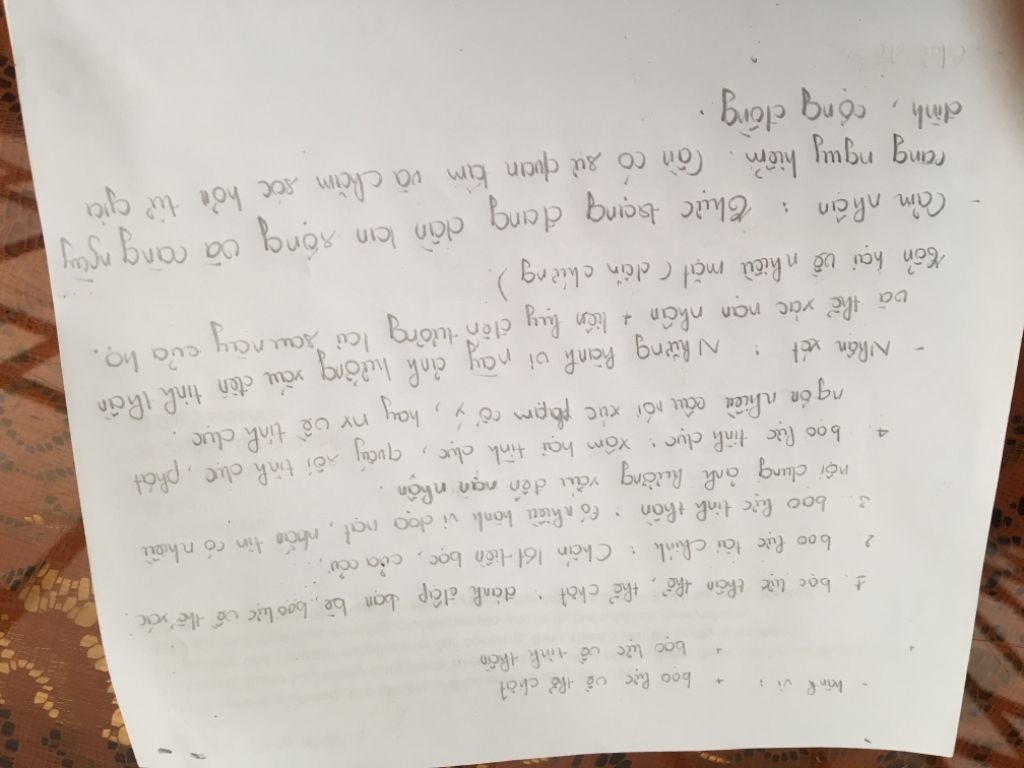 - hành vi : + bạo lực về thể chất
+ bạo lực về tinh thần
1. bạo lực thân thể, thể chất : đánh đập bạn bè, bạo lực về thể xác.
2 bạo lực tài chính : Chấn lột tiền bạc, của cải,..
3. bạo lực tinh thần : Có nhiều hành vi dọa nạt, nhắn tin có nhiều
nội dung ảnh hưởng xấu đến nạn nhân.
4. bạo lực tình dục : xâm hại tình dục, quấy rối tình dục, phát
ngôn nhiều câu nói xúc phạm cố ý, hay nx về tình dục.
- Nhận xét : Những hành vi này ảnh hưởng xấu đến tinh thần
và thể xác nạn nhân + liên lụy đến tương lai sau này của họ.
tổn hại về nhiều mặt ( dẫn chứng )
- Cảm nhận : thực trạng đang dần lan rộng và càng ngày
càng nguy hiểm. Cần có sự quan tâm và chăm sóc hơn từ gia
đình, cộng đồng.